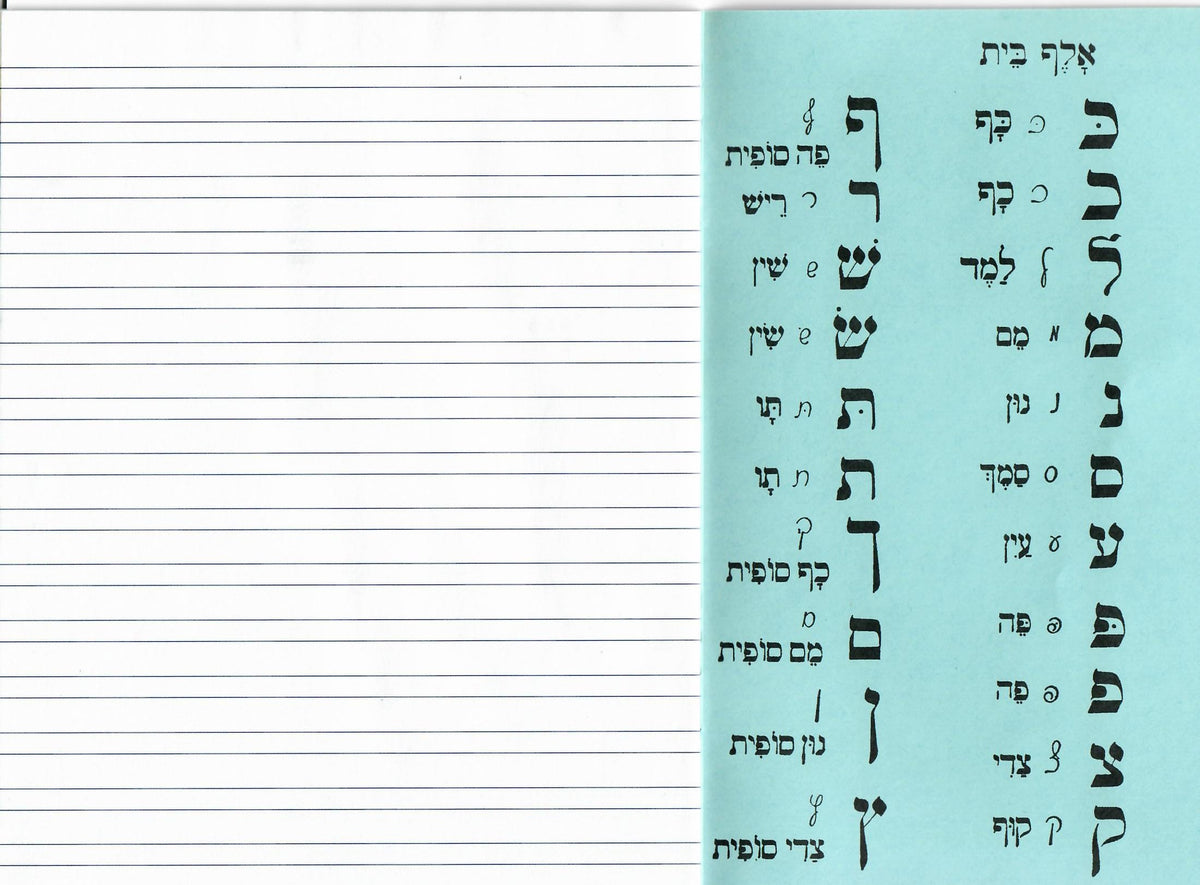 אָלֶף בֵּית
כּ כּ כָּף
כ כ כָף
ל ל לַמֶד
מ מ מֵם
נ נ נוּן
ס ס סַמֶךְ
ע ע עַיִן
פּ פּ פֵּה
פ פ פֵה
צ צ צַדִי
ק ק קוּף
ף ף
פֵה סוֹפִית
ר ר רֵישׁ
שׁ שׁ שִׁין
שׂ שׂ שִׂין
תּ תּ תָּו
ת ת תָו
ך ך
כָף סוֹפִית
ם ם
מֵם סוֹפִית
ן ן
נוּן סוֹפִית
ץ ץ
צַדִי סוֹפִית